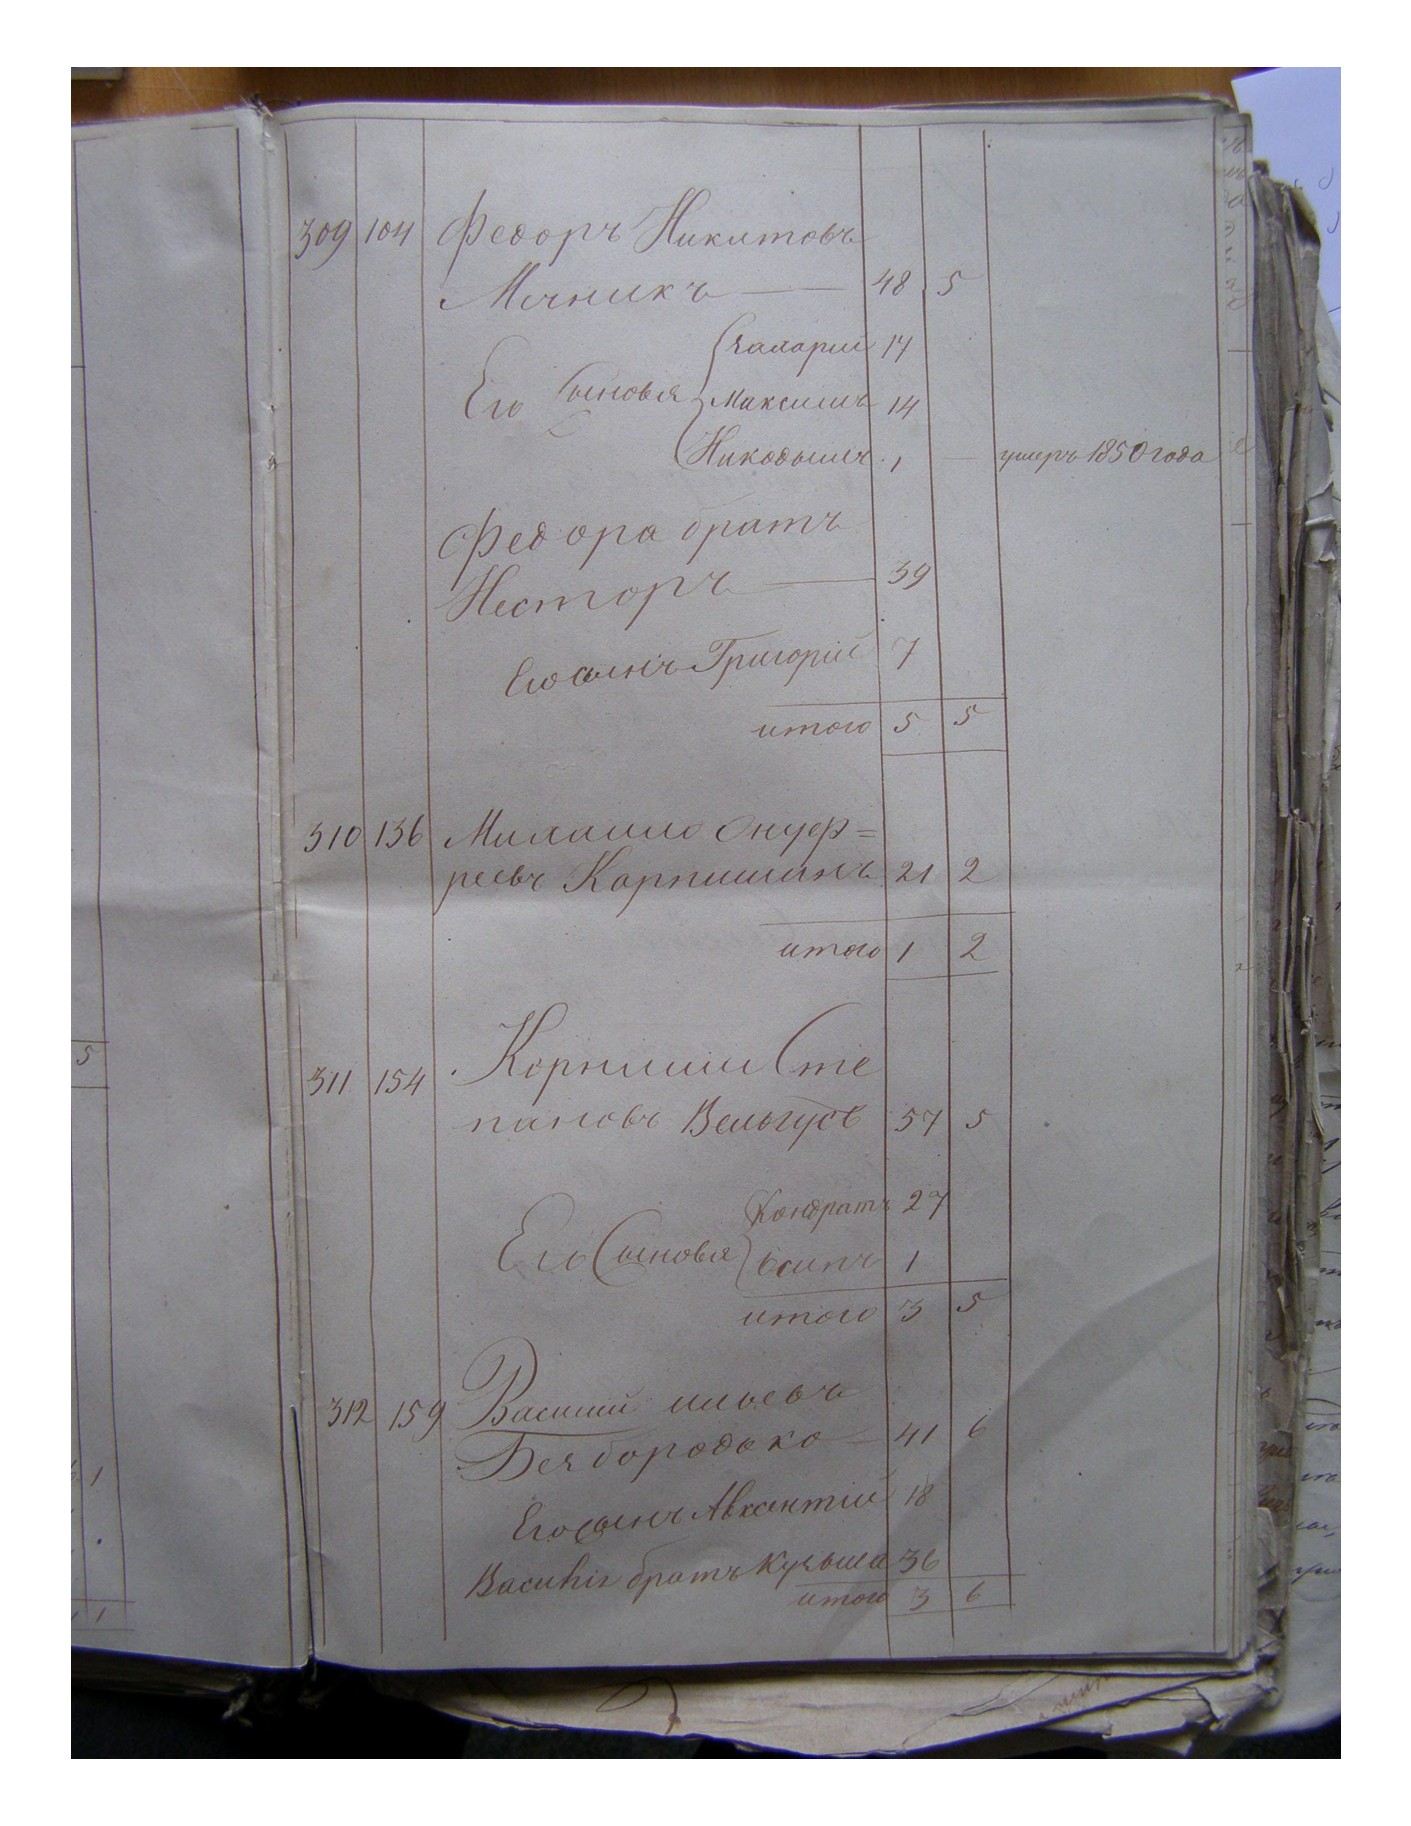 309 104 Федоръ Никитовъ
Мечникъ 48 5
Макарій 17
Его Сыновья Максимъ 14
Никодымъ 1 умеръ 1850 года
Федора братъ
Несторъ 39
Его сынъ Григорій 7
итого 5 5
310 136 Михайло Онуф=
реевъ Карпишинъ 21 2
итого 1 2
311 154 Корнилий Сте
пановъ Вельгусъ 57 5
Кондратъ 27
Его Сыновья Осипъ 1
итого 3 5
312 159 Василий Ильевъ
Безбородько 41 6
Его Сынъ Авксентій 18
Василія братъ Кузьма 36
итого 3 6
5
1
1 1